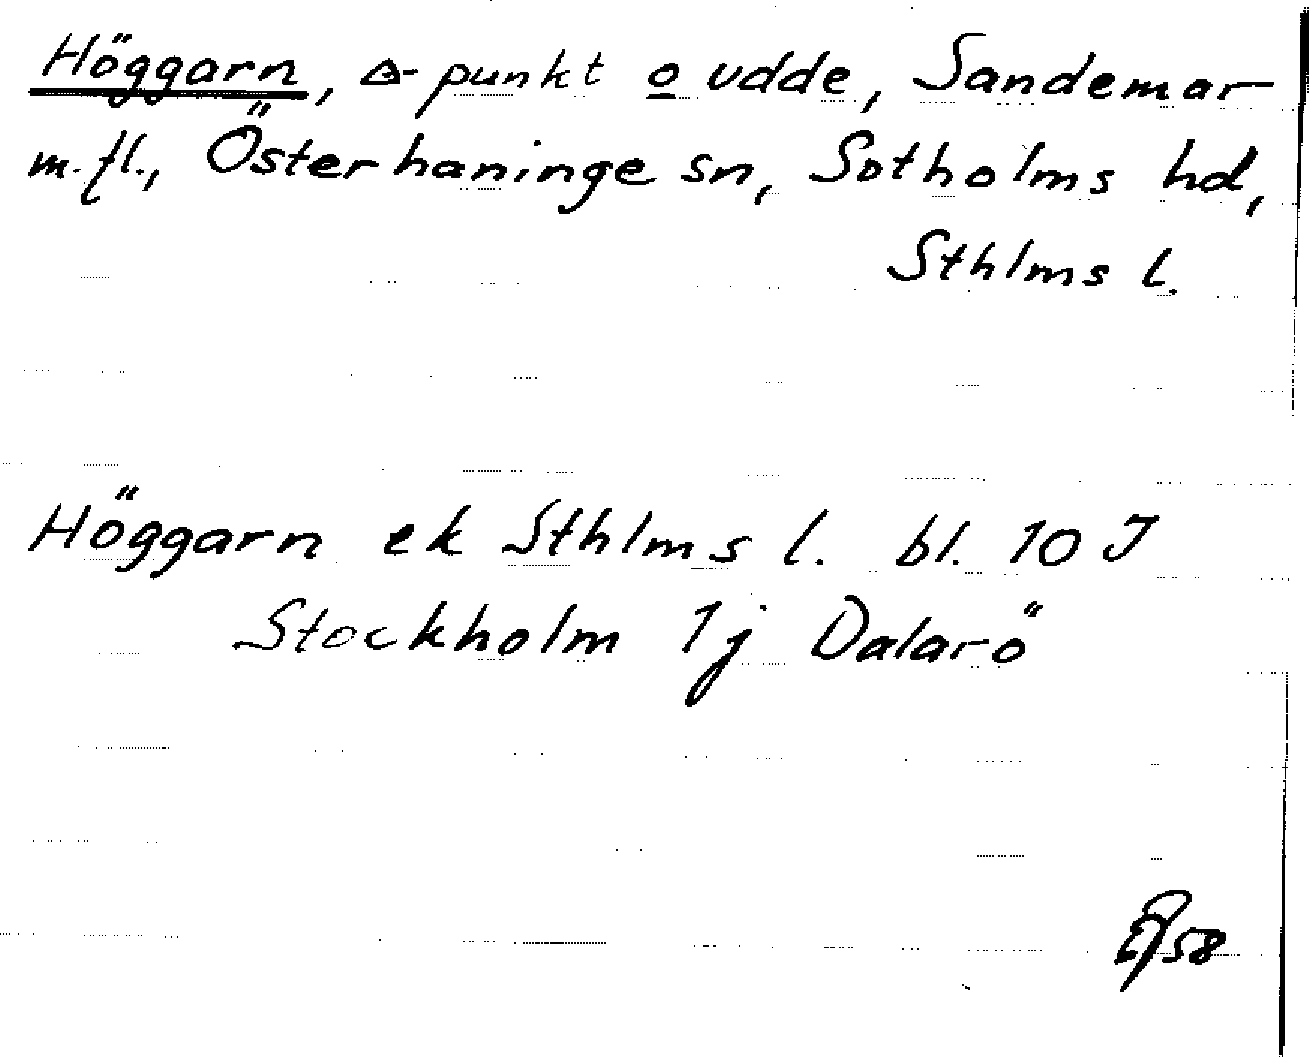 Höggarn, △-punkt o udde, Sandemar
m.fl., Österhaninge sn, Sotholms hd,
Sthlms l.
Höggarn ek Sthlms l. bl. 10 J
Stockholm 1j Dalarö
58